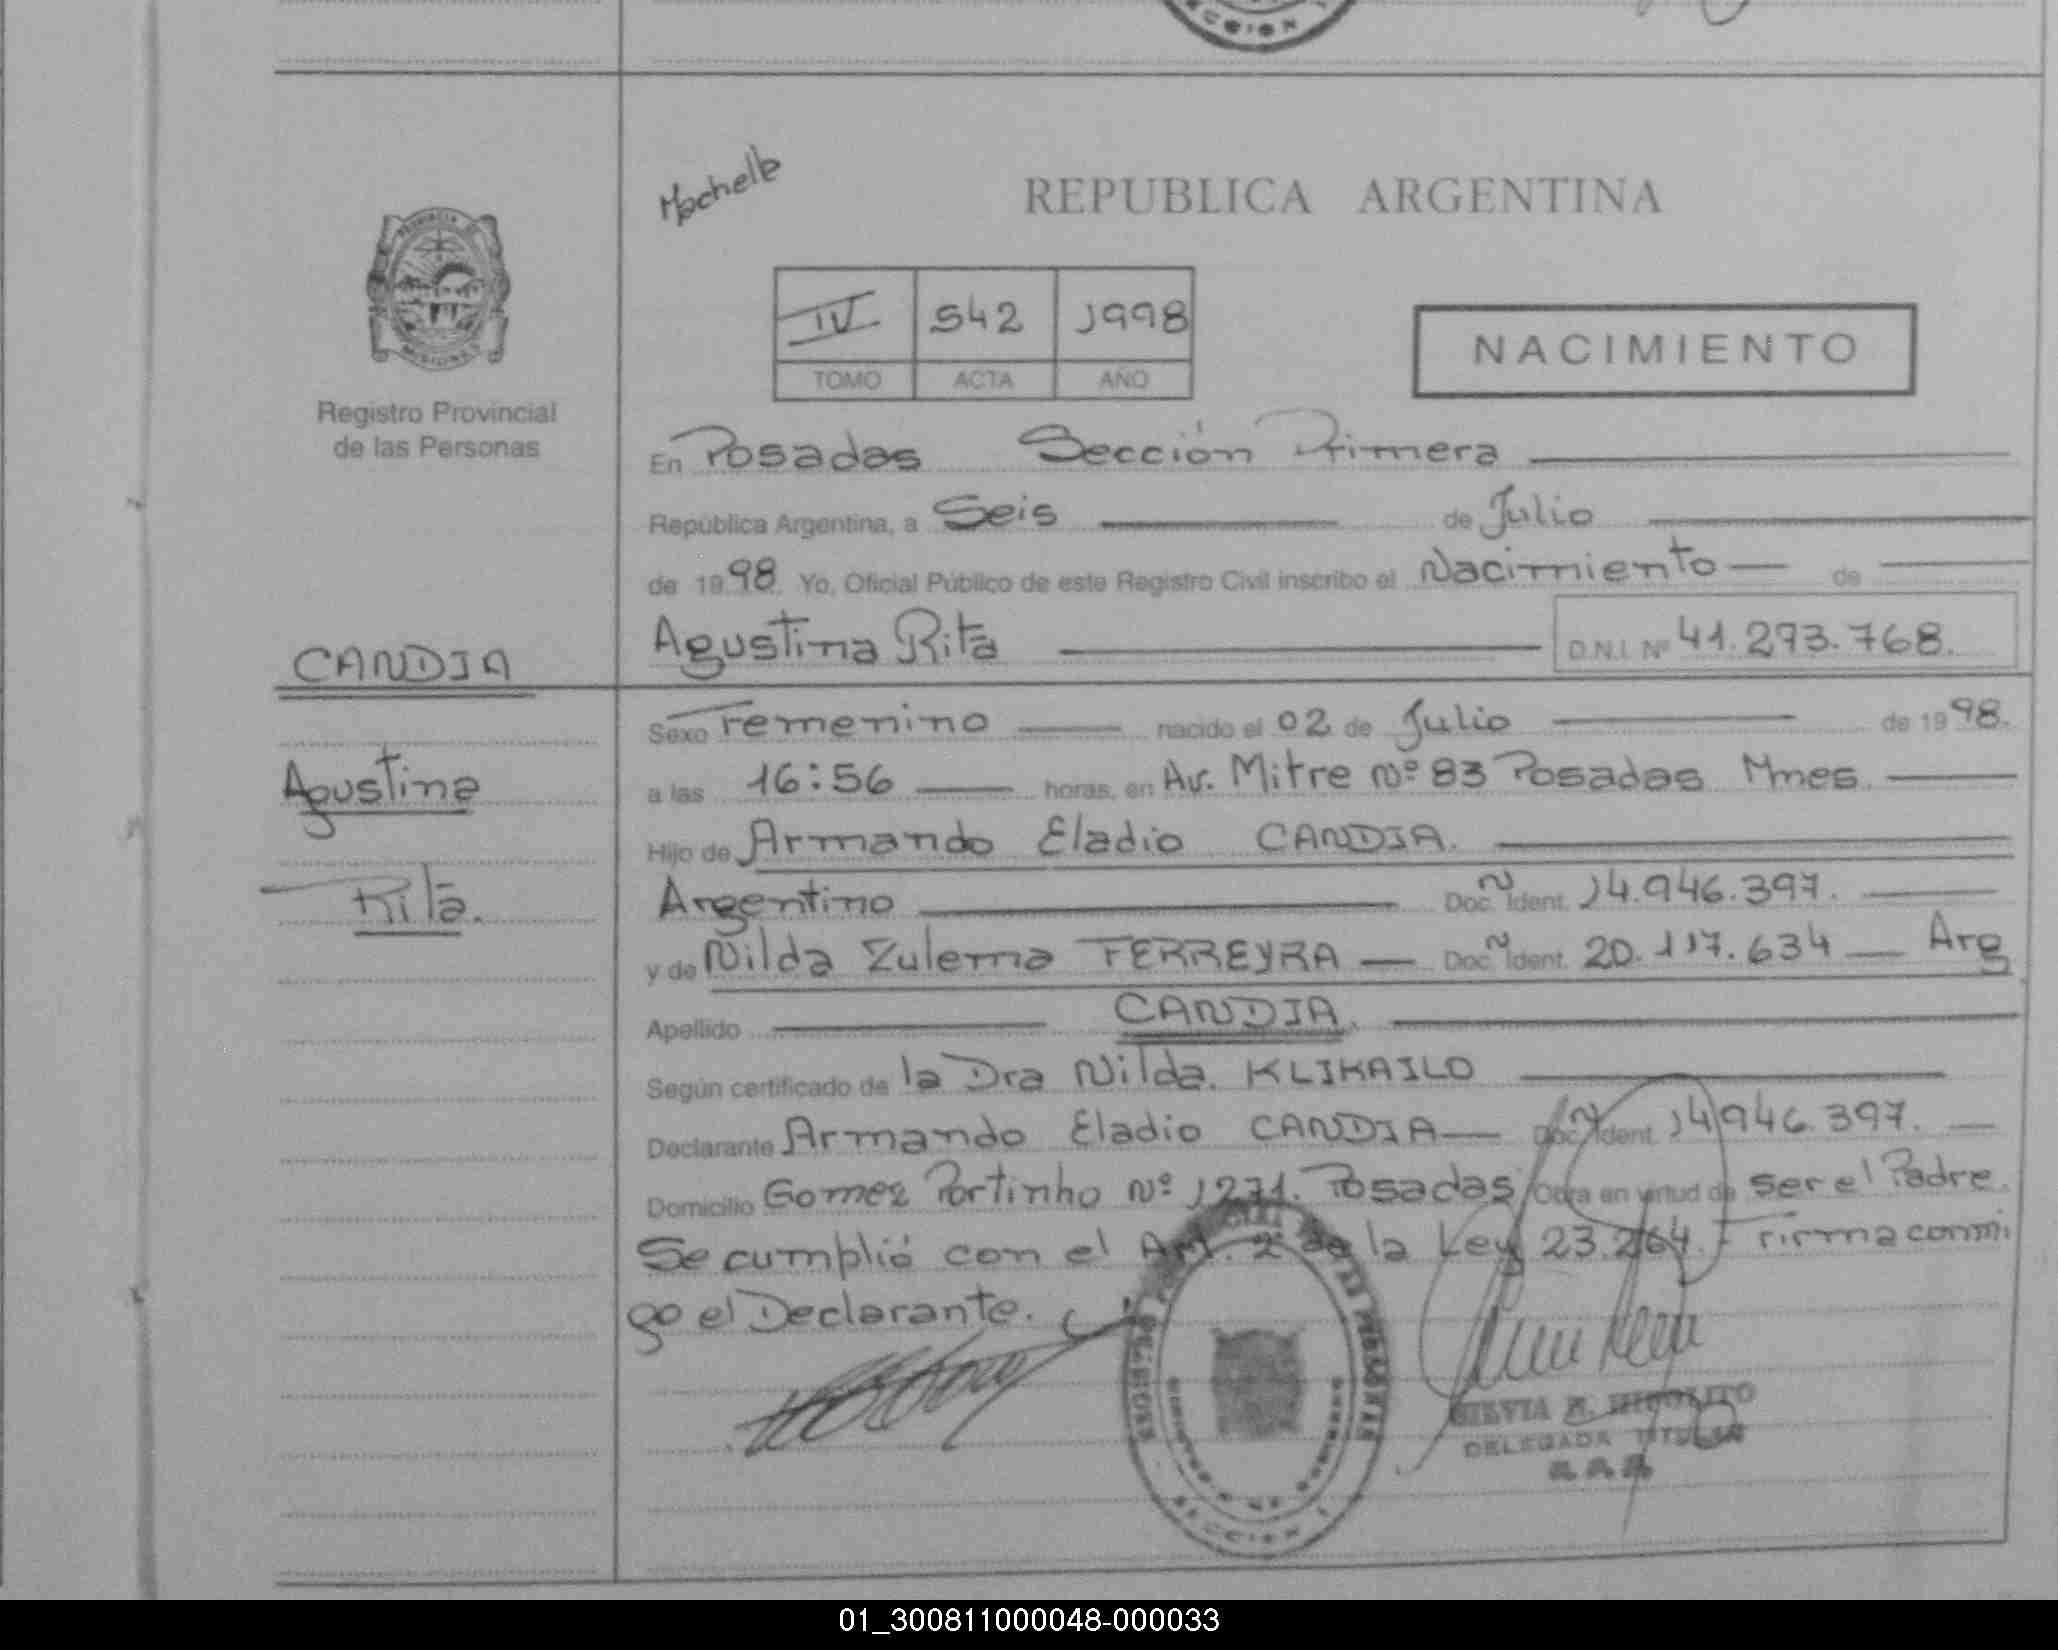 SECCION
Mochelle
REPUBLICA ARGENTINA
IV 542 1998
TOMO ACTA AÑO
NACIMIENTO
PROVINCIA DE
MISIONES
Registro Provincial
de las Personas
En Posadas Sección Primera
República Argentina, a Seis de Julio
de 19 98 Yo, Oficial Público de este Registro Civil inscribo el Nacimiento de
CANDIA
Agustina Rita D.N.I. Nº 41.293.768.
Sexo Femenino nacido el 02 de Julio de 19 98.
Agustina
a las 16:56 horas, en Av. Mitre Nº 83 Posadas Mnes.
Hijo de Armando Eladio CANDIA.
Rita.
Argentino Doc. Ident. 14.946.397.
y de Nilda Zulema FERREYRA Doc. Ident. 20.117.634 Arg
Apellido CANDIA.
Según certificado de la Dra Nilda. KLIKAILO
Declarante Armando Eladio CANDIA Doc. Ident. 14946.397.
Domicilio Gomez Portinho Nº 1271. Posadas Obra en virtud de ser el Padre.
Se cumplió con el Art. 2 de la Ley 23.264. Firma conmi
go el Declarante.
SILVIA R. HIPOLITO
DELEGADA TITULAR
SECCION I
01_300811000048-000033